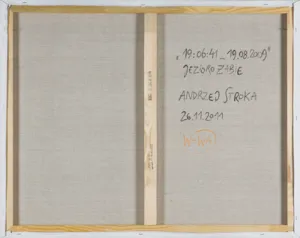 „19:06:41_19.08.2009"
JEZIORO ŻABIE
ANDRZEJ SROKA
26.11.2011